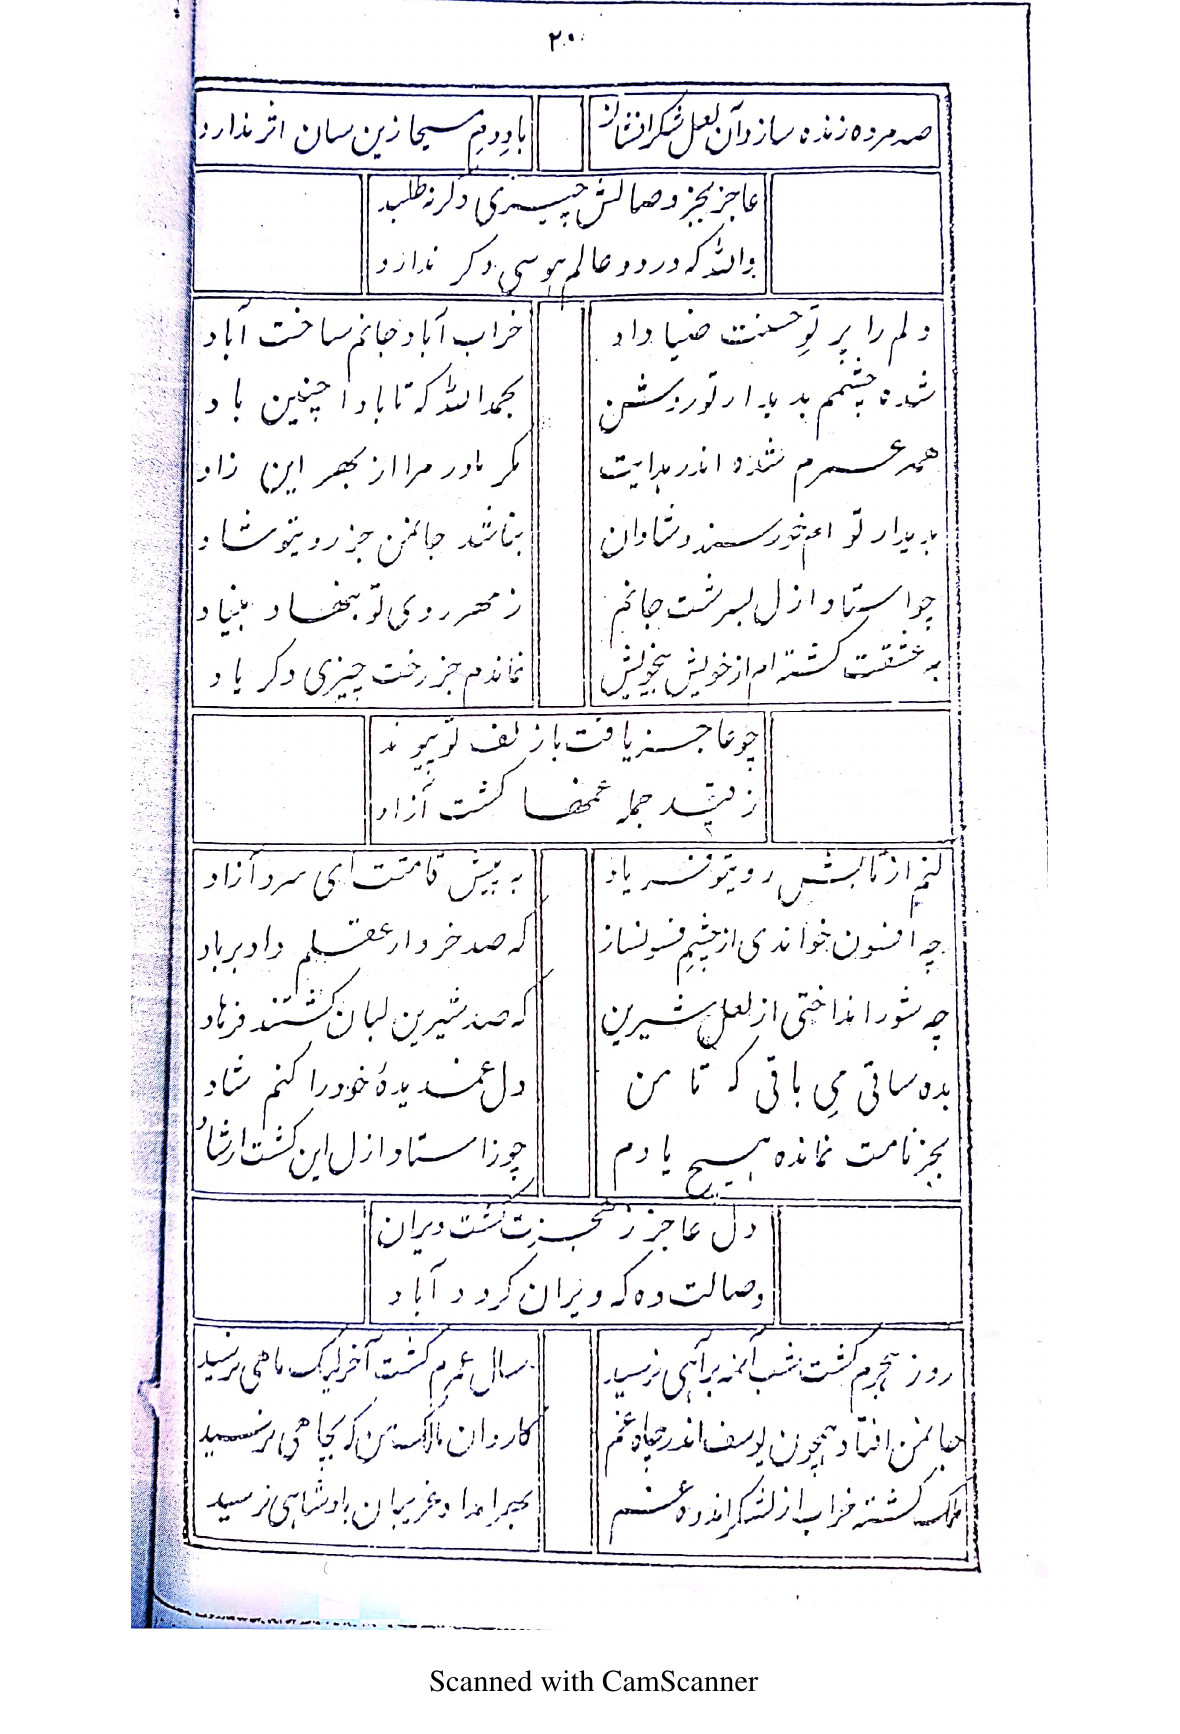 ۲۰
صد مرده زنده سازد آن لعل شکر افشان
باد دم مسیحا زین سان اثر ندارد
عاجز بجز وصالش چیزی دکر نه طلبد
والله که در دو عالم هوسی دکر ندارد
دلم را پرتوِ حسنت ضیا داد
خراب آباد جانم ساخت آباد
شده چشمم بدیدار تو روشن
بحمدالله که تا بادا چنین باد
همه عمرم شده اندر هدایت
مکر مادر مرا از بهر این زاد
بدیدار تو ام خورسند و شادان
نباشد جانمن جز رویتو شاد
چو استاد ازل بسرشت جانم
ز مهر روی تو بنهاد بنیاد
به عشقت کشته ام از خویش بیخویش
نماندم جز رخت چیزی دکر یاد
چو عاجز یافت باز لف تو پیوند
ز قید جمله غمها کشت آزاد
کنم از تابش رویتو فریاد
به پیش قامتت ای سرو آزاد
چه افسون خواندی از چشمِ فسونساز
که صد خروار عقلم داد برباد
چه شور انداختی از لعل شیرین
که صد شیرین لبان کشتند فرهاد
بده ساقی میِ باقی که تا من
دل غمدیدهٔ خود را کنم شاد
بجز نامت نمانده هیچ یادم
چو ز استاد ازل این کشت ارشاد
دل عاجز ز هجرت کشت ویران
وصالت ده که ویران کردد آباد
روز هجرم کشت شب آنمه برآهی نرسید
سال عمرم کشت آخر لیک ماهی نرسید
جانمن افتاد همچون یوسف اندر چاه غم
کاروان مالک من که بچاهی نرسید
ملک کشته خراب از لشکر اندوه غم
بهر امداد غریبان بادشاهی نرسید
Scanned with CamScanner